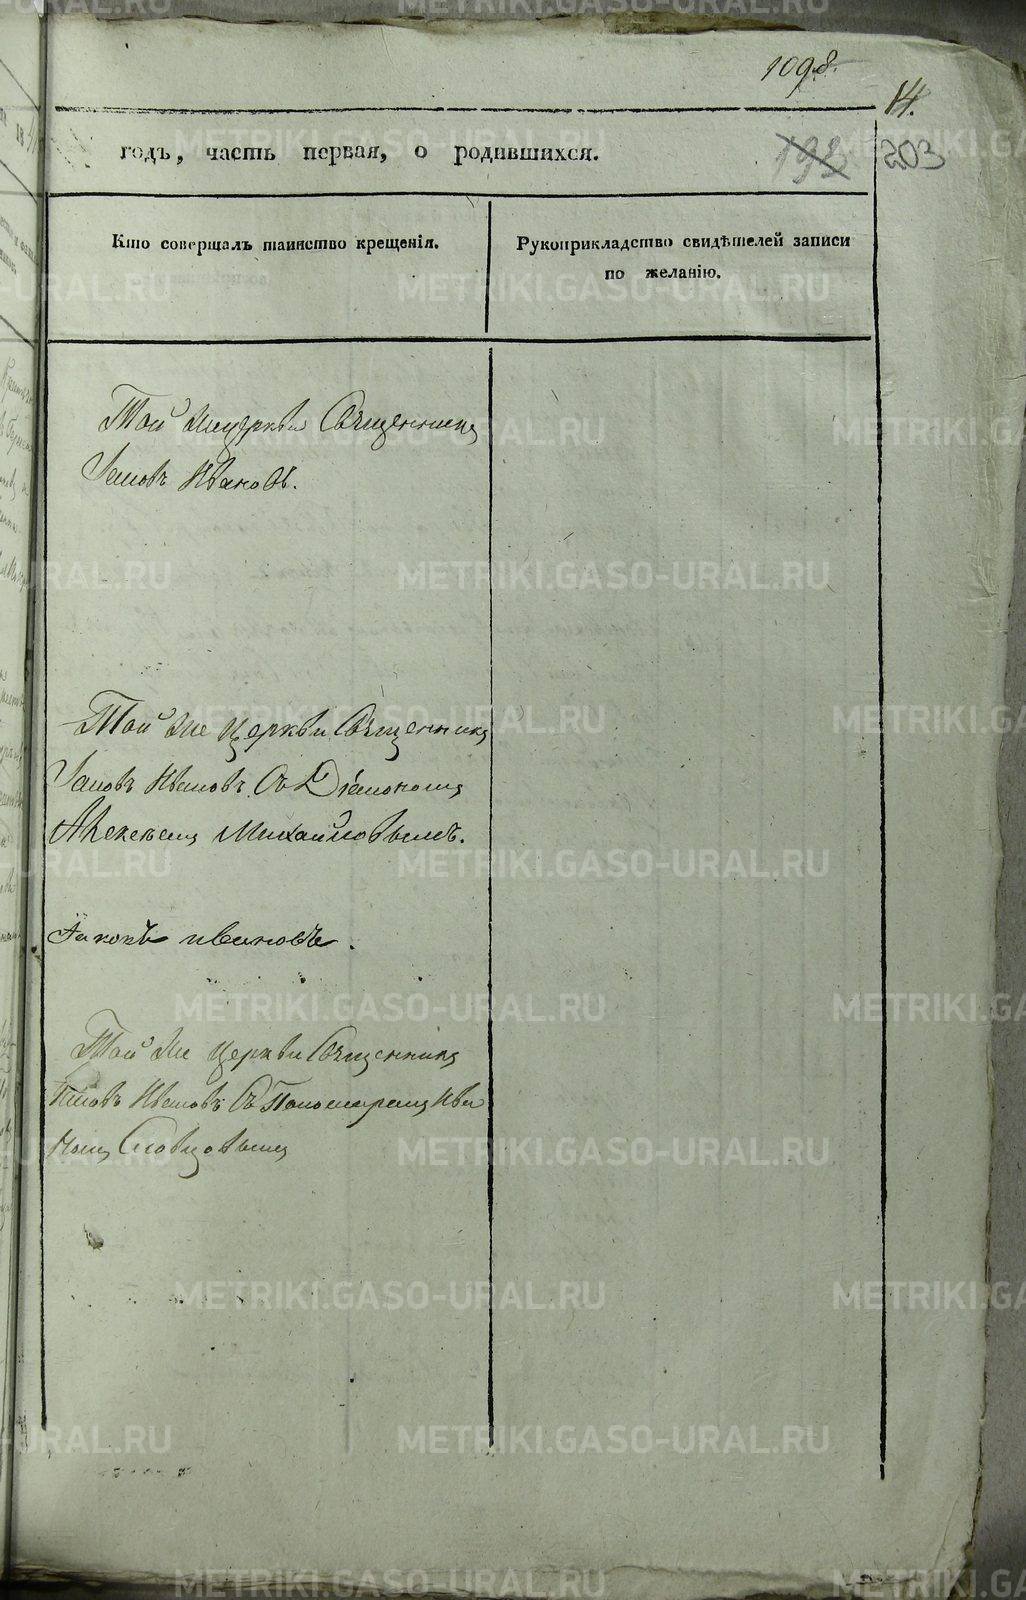 1098.
14.
годъ, часть первая, о родившихся.
193 203
Кто совершалъ таинство крещенія.
Рукоприкладство свидѣтелей записи
по желанію.
Той же церкви Священникъ
Іаковъ Ивановъ.
Той же церкви Священникъ
Іаковъ Ивановъ съ Діякономъ
Алексѣемъ Михайловымъ.
Іаковъ Ивановъ.
Той же церкви Священникъ
Іаковъ Ивановъ съ Пономаремъ Ива
номъ Словцовымъ
METRIKI.GASO-URAL.RU